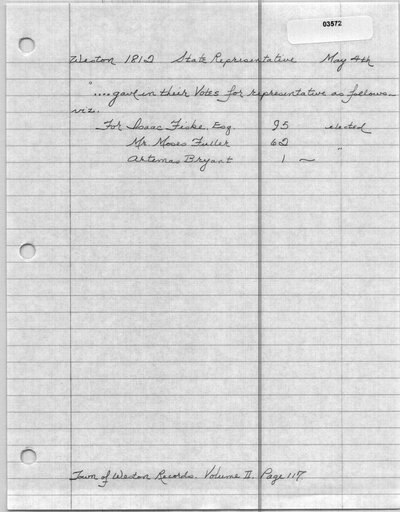 03572
Weston 1812 State Representative May 4th
"....gave in their Votes for representative as follows—
viz.
For Isaac Fiske, Esq. 95 elected
Mr. Moses Fuller 62 "
Artemas Bryant 1 ~
Town of Weston Records. Volume II. Page 117